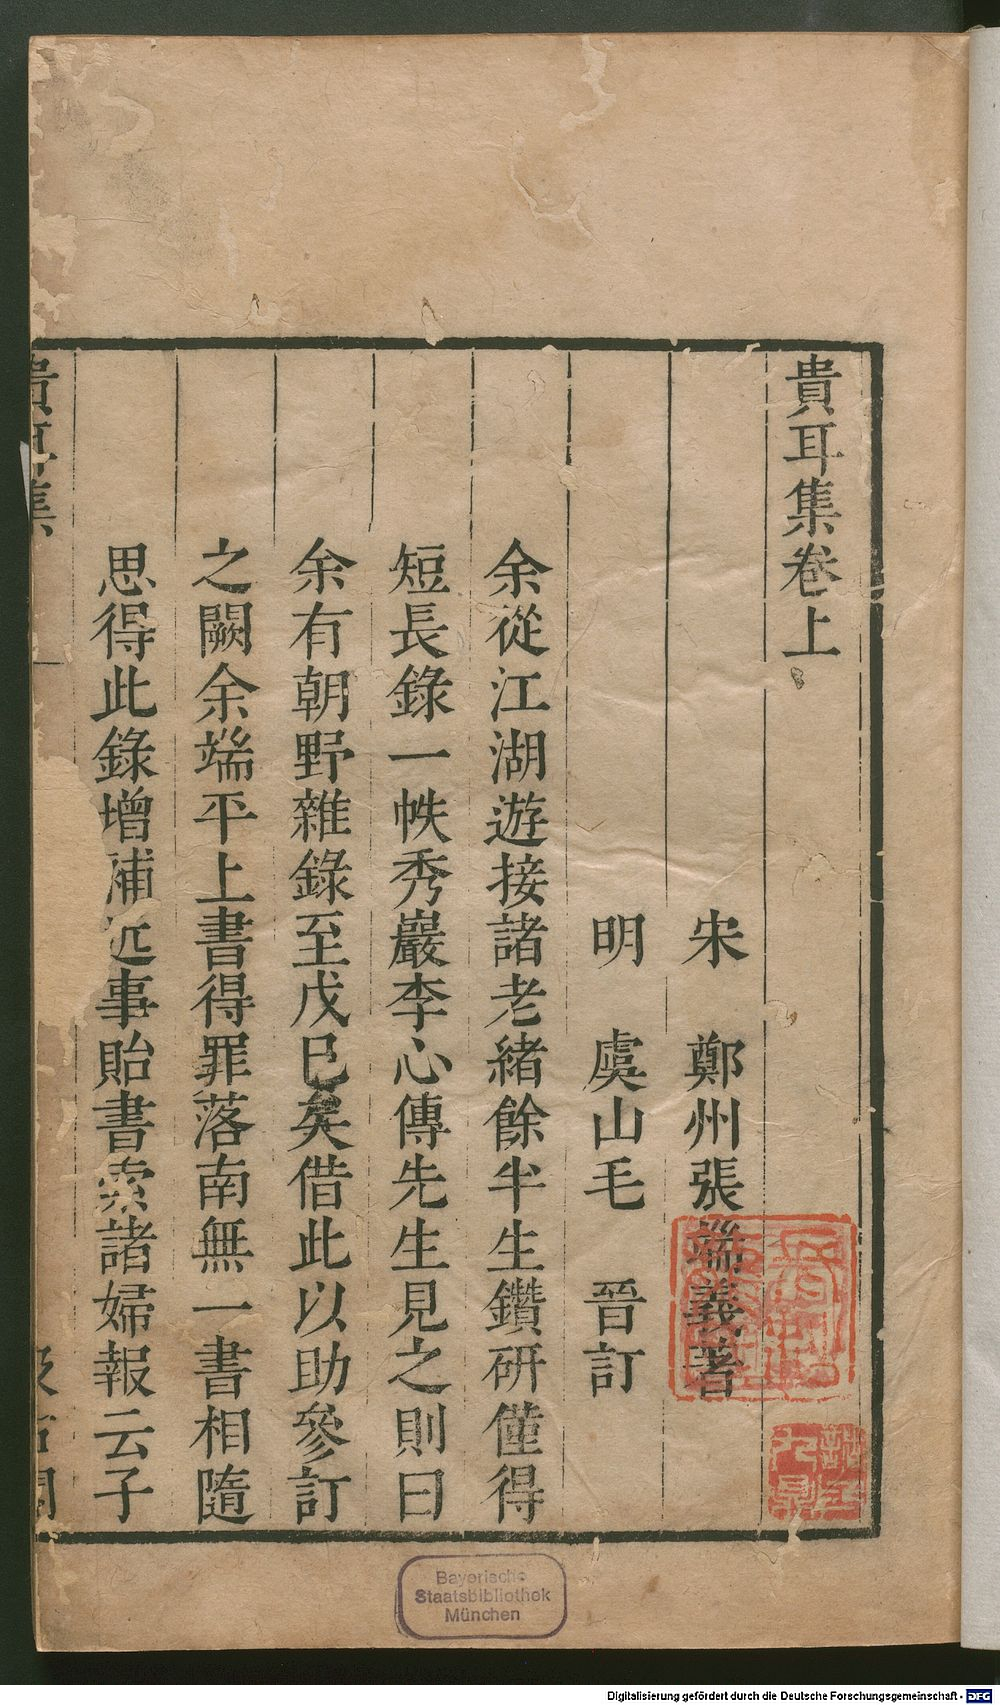 貴耳集卷上
宋　鄭州張端義著
明　虞山毛　晉訂
余從江湖遊接諸老緒餘半生鑽研僅得
短長錄一帙秀巖李心傳先生見之則曰
余有朝野雜錄至戊巳矣借此以助參訂
之闕余端平上書得罪落南無一書相隨
思得此錄增補近事貽書索諸婦報云子
貴耳集
一
汲古閣
Bayerische
Staatsbibliothek
München
Digitalisierung gefördert durch die Deutsche Forschungsgemeinschaft - DFG